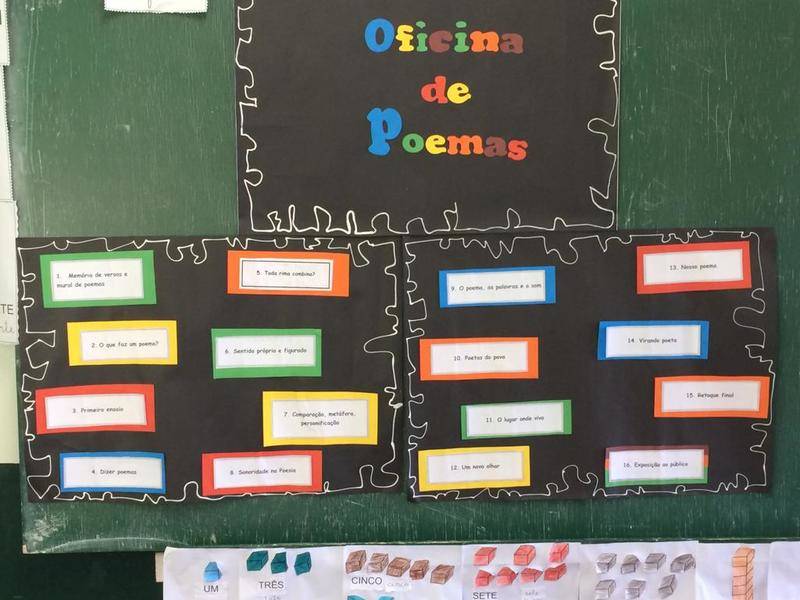 Oficina
de
Poemas
1. Memória de versos e
mural de poemas
2: O que faz um poema?
3. Primeiro ensaio
4. Dizer poemas
5. Toda rima combina?
6. Sentido próprio e figurado
7. Comparação, metáfora,
personificação
8. Sonoridade na Poesia
9. O poema, as palavras e o som
10. Poetas do povo
11. O lugar onde vivo
12. Um novo olhar
13. Nosso poema
14. Virando poeta
15. Retoque final
16. Exposição ao público
TE
UM
TRÊS
CINCO
SETE
sete